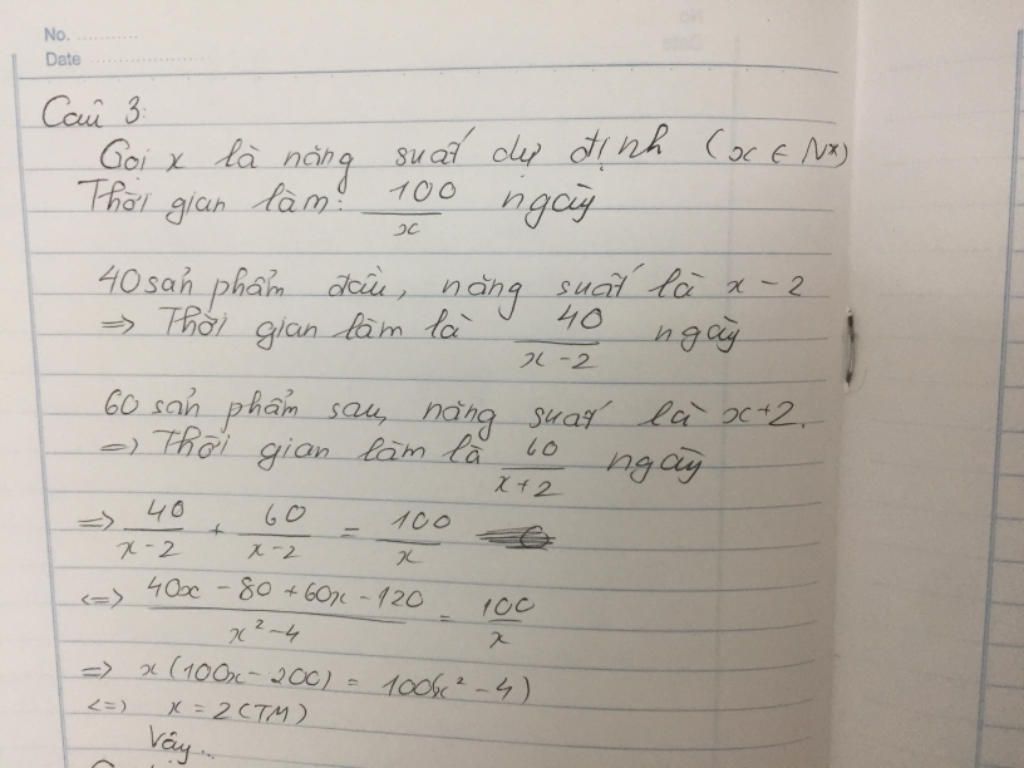 No. ..........
Date ....................
Câu 3:
Gọi x là năng suất dự định (x ∈ N*)
Thời gian làm: 100/x ngày
40 sản phẩm đầu, năng suất là x - 2
=> Thời gian làm là 40/(x-2) ngày
60 sản phẩm sau, năng suất là x+2.
=> Thời gian làm là 60/(x+2) ngày
=> 40/(x-2) + 60/(x-2) = 100/x
<=> (40x - 80 + 60x - 120)/(x² - 4) = 100/x
=> x(100x - 200) = 100(x² - 4)
<=> x = 2 (TM)
Vậy..